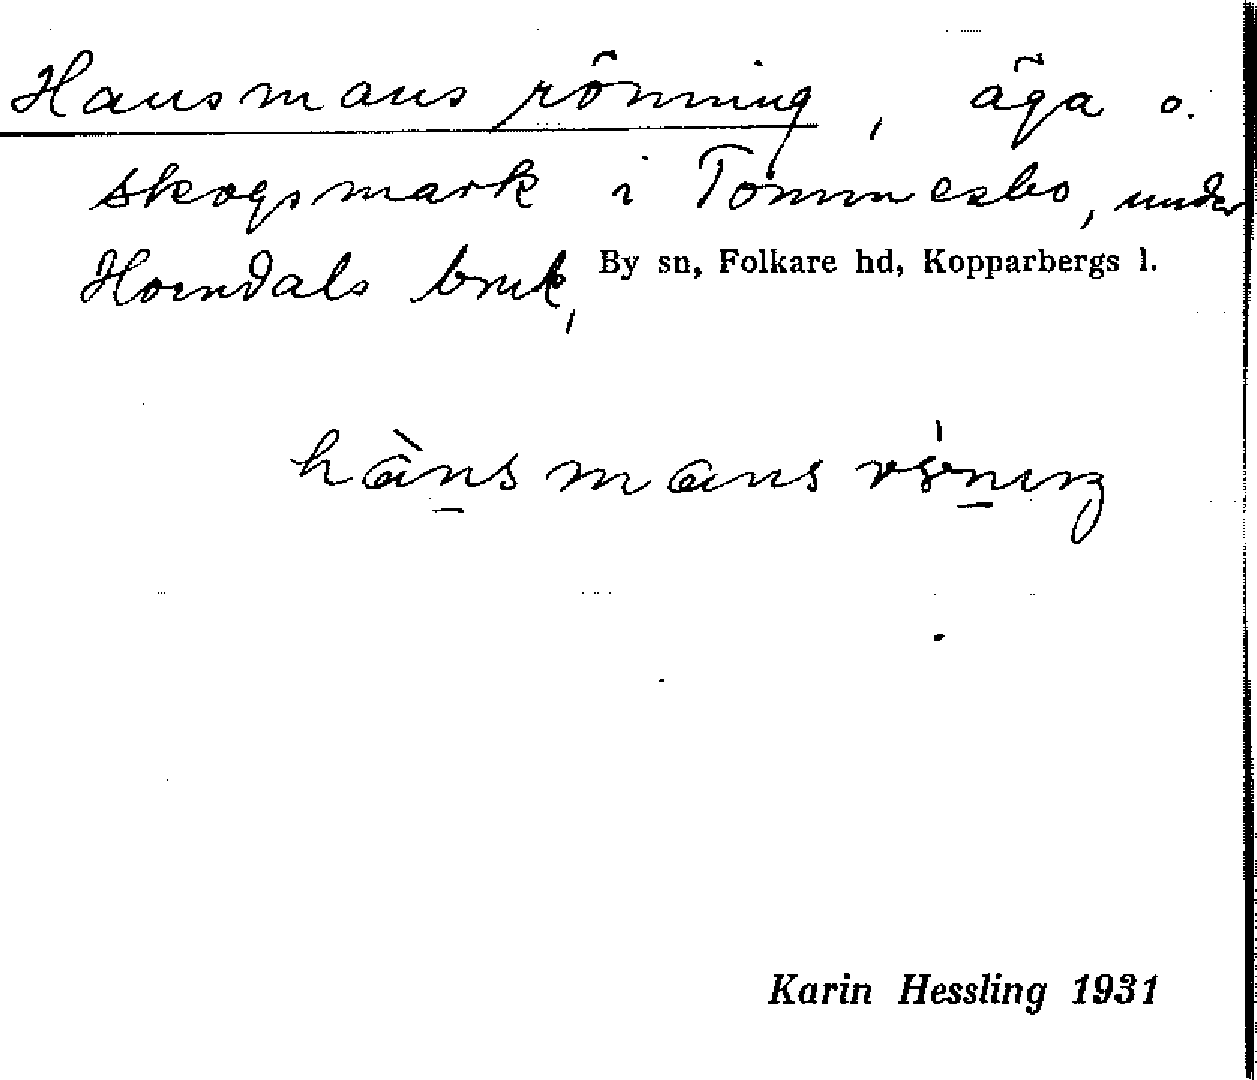 Hansmans rönning, äga o.
skogsmark i Tömmesbo, under
Horndals bruk, By sn, Folkare hd, Kopparbergs l.
hànsmans rönıŋ
Karin Hessling 1931